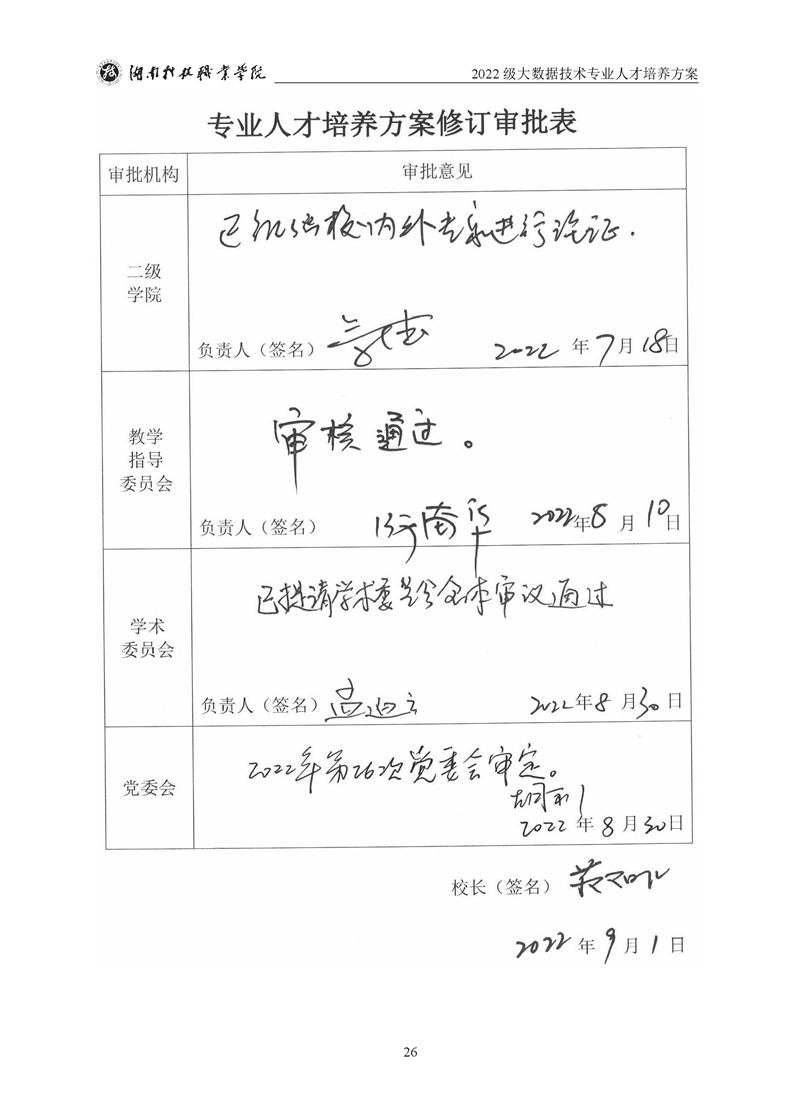 湖南科技职业学院
2022 级大数据技术专业人才培养方案
专业人才培养方案修订审批表
审批机构 审批意见
已组织校内外专家进行论证.
二级
学院
负责人（签名） 2022 年 7 月 18 日
审核通过。
教学
指导
委员会
负责人（签名） 2022 年 8 月 10 日
已提请学术委员会全体审议通过
学术
委员会
负责人（签名） 2022 年 8 月 30 日
2022年第26次党委会审定。
党委会
2022 年 8 月 30 日
校长（签名）
2022 年 9 月 1 日
26